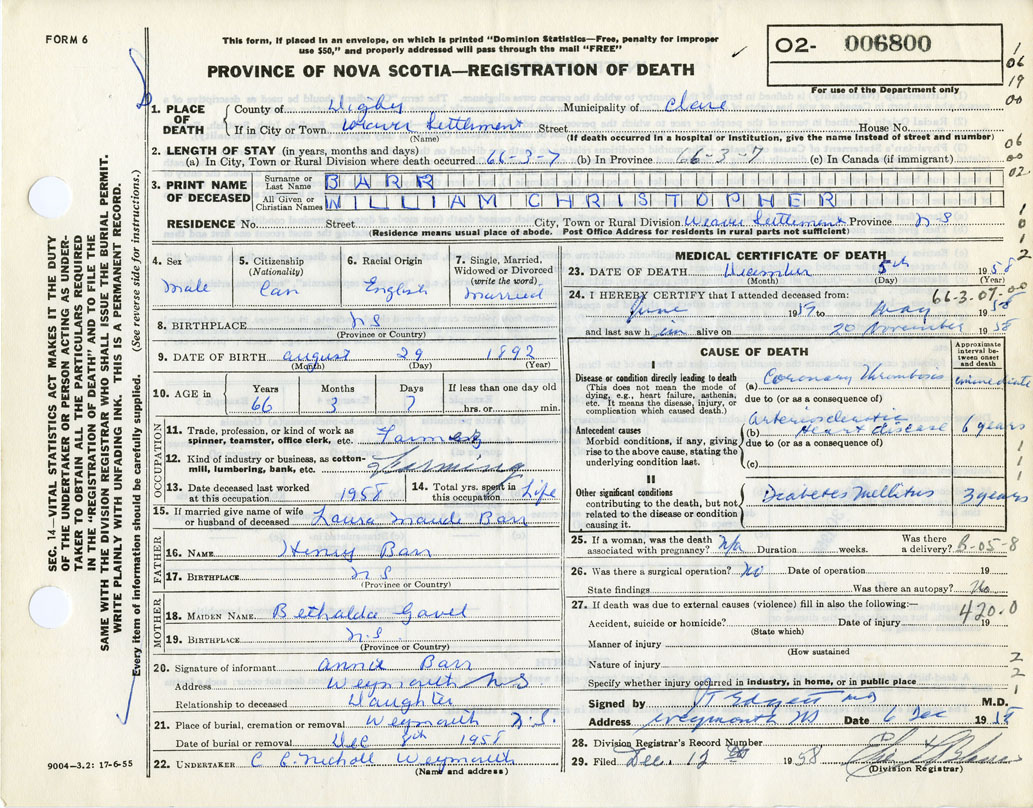 FORM 6
This form, if placed in an envelope, on which is printed "Dominion Statistics—Free, penalty for improper
use $50," and properly addressed will pass through the mail "FREE"
02- 006800
For use of the Department only
PROVINCE OF NOVA SCOTIA—REGISTRATION OF DEATH
SEC. 14—VITAL STATISTICS ACT MAKES IT THE DUTY
OF THE UNDERTAKER OR PERSON ACTING AS UNDER-
TAKER TO OBTAIN ALL THE PARTICULARS REQUIRED
IN THE "REGISTRATION OF DEATH" AND TO FILE THE
SAME WITH THE DIVISION REGISTRAR WHO SHALL ISSUE THE BURIAL PERMIT.
WRITE PLAINLY WITH UNFADING INK. THIS IS A PERMANENT RECORD.
Every item of information should be carefully supplied. (See reverse side for instructions.)
1. PLACE OF DEATH
County of Digby Municipality of Clare
If in City or Town Weaver Settlement Street House No.
(Name) (If death occurred in a hospital or Institution, give the name instead of street and number)
2. LENGTH OF STAY (in years, months and days)
(a) In City, Town or Rural Division where death occurred 66-3-7 (b) In Province 66-3-7 (c) In Canada (if immigrant)
3. PRINT NAME OF DECEASED
Surname or Last Name BARR
All Given or Christian Names WILLIAM CHRISTOPHER
RESIDENCE No. Street City, Town or Rural Division Weaver Settlement Province N S
(Residence means usual place of abode. Post Office Address for residents in rural parts not sufficient)
4. Sex Male
5. Citizenship (Nationality) Can
6. Racial Origin English
7. Single, Married, Widowed or Divorced (write the word) Married
8. BIRTHPLACE N S
(Province or Country)
9. DATE OF BIRTH August 29 1892
(Month) (Day) (Year)
10. AGE in Years 66 Months 3 Days 7 If less than one day old hrs. or min.
OCCUPATION
11. Trade, profession, or kind of work as spinner, teamster, office clerk, etc. Farmer
12. Kind of industry or business, as cotton-mill, lumbering, bank, etc. Farming
13. Date deceased last worked at this occupation 1958
14. Total yrs. spent in this occupation Life
15. If married give name of wife or husband of deceased Laura Maude Barr
FATHER
16. NAME Henry Barr
17. BIRTHPLACE N S
(Province or Country)
MOTHER
18. MAIDEN NAME Bethalda Gavel
19. BIRTHPLACE N.S.
(Province or Country)
20. Signature of informant Annie Barr
Address Weymouth N.S.
Relationship to deceased Daughter
21. Place of burial, cremation or removal Weymouth N.S.
Date of burial or removal Dec 8th 1958
22. UNDERTAKER C C Nicholl Weymouth
(Name and address)
9004-3.2: 17-6-55
MEDICAL CERTIFICATE OF DEATH
23. DATE OF DEATH December 5th 1958
(Month) (Day) (Year)
24. I HEREBY CERTIFY that I attended deceased from: 66-3-07-00
June 19 to May 1958
and last saw h im alive on 20 November 1958
CAUSE OF DEATH
Approximate interval between onset and death
I
Disease or condition directly leading to death
(This does not mean the mode of dying, e.g., heart failure, asthenia, etc. It means the disease, injury, or complication which caused death.)
(a) Coronary Thrombosis immediate
due to (or as a consequence of)
Antecedent causes
Morbid conditions, if any, giving rise to the above cause, stating the underlying condition last.
(b) Arteriosclerotic Heart disease 6 years
due to (or as a consequence of)
(c)
II
Other significant conditions
contributing to the death, but not related to the disease or condition causing it.
Diabetes Mellitus 3 years
25. If a woman, was the death associated with pregnancy? N/a Duration weeks. Was there a delivery? B-05-8
26. Was there a surgical operation? No Date of operation 19
State findings Was there an autopsy? No
27. If death was due to external causes (violence) fill in also the following:— 420.0
Accident, suicide or homicide? Date of injury 19
(State which)
Manner of injury
(How sustained
Nature of injury
Specify whether injury occurred in industry, in home, or in public place
Signed by M.D.
Address Weymouth NS Date 6 Dec 1958
28. Division Registrar's Record Number
29. Filed Dec. 12 1958
(Division Registrar)